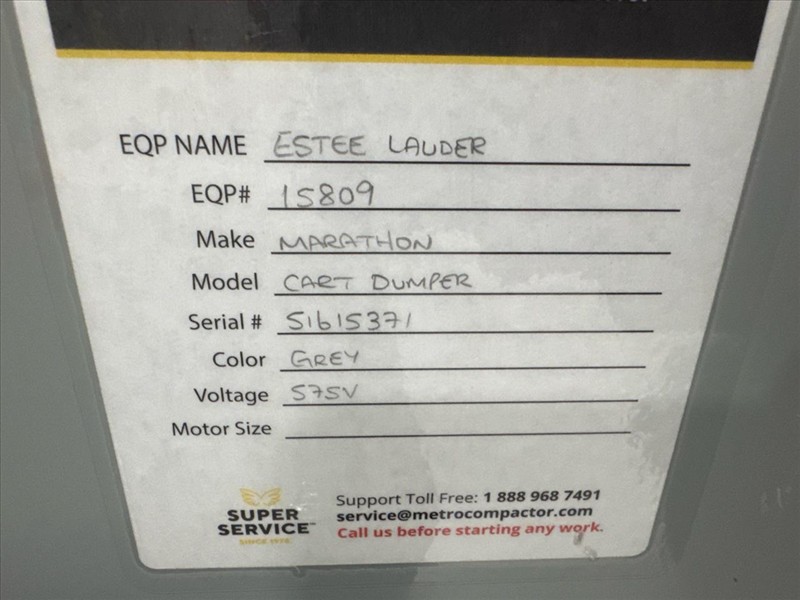 EQP NAME ESTEE LAUDER
EQP# 15809
Make MARATHON
Model CART DUMPER
Serial # 51615371
Color GREY
Voltage 575V
Motor Size
SUPER
SERVICE™
SINCE 1973
Support Toll Free: 1 888 968 7491
service@metrocompactor.com
Call us before starting any work.